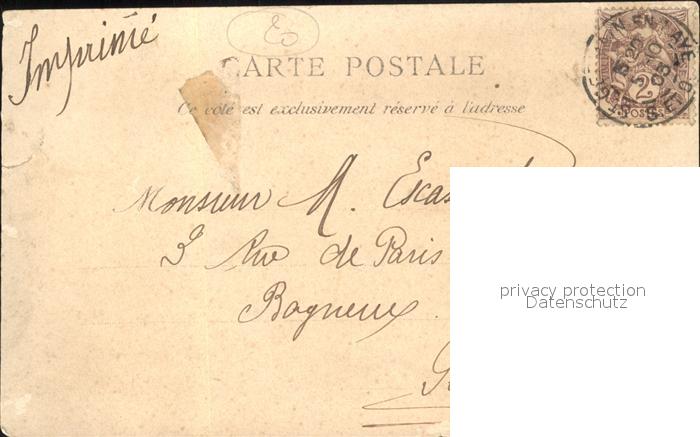 Imprimé
CARTE POSTALE
Ce côté est exclusivement réservé à l'adresse
2
POSTES
Monsieur
3 Rue de Paris
Bagneux
privacy protection
Datenschutz